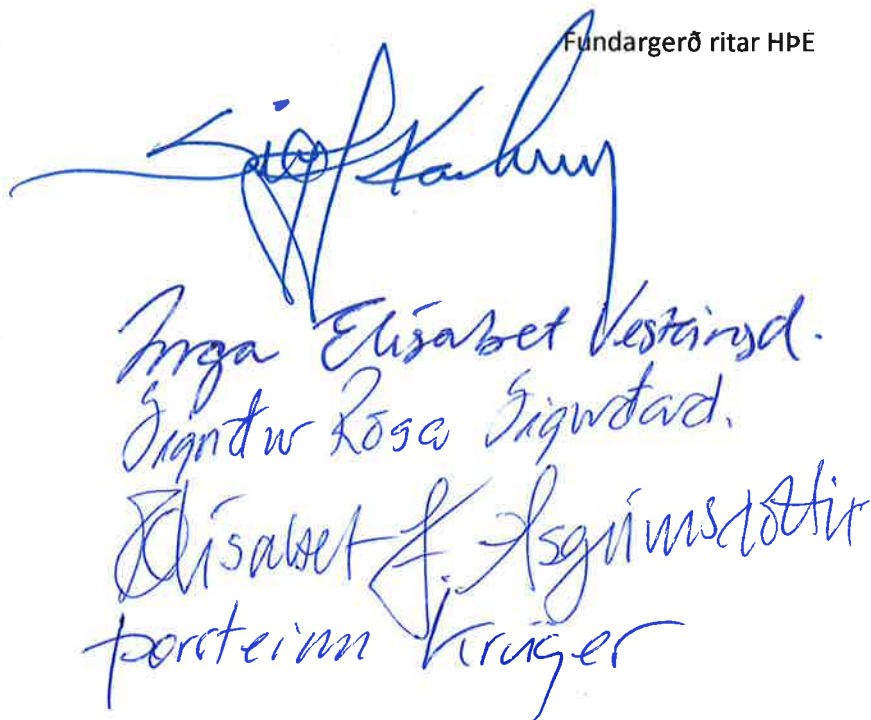 Fundargerð ritar HÞE
Inga Elísabet Vestmann
Sigríður Rósa Sigurðard.
Elísabet Ásgrímsdóttir
Þorsteinn Krüger